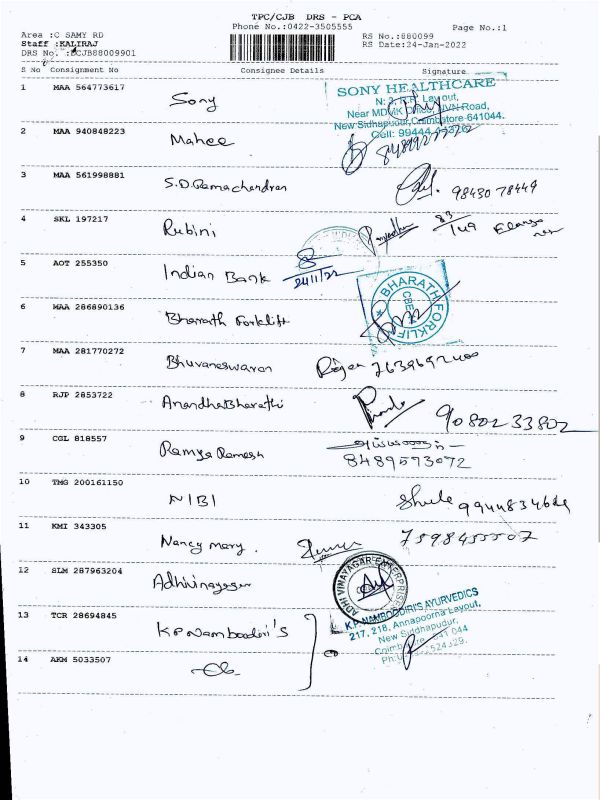 TPC/CJB DRS - PCA
Phone No.:0422-3505555
Page No.:1
Area :C SAMY RD
RS No.:880099
Staff :KALIRAJ
RS Date:24-Jan-2022
DRS No. :DCJB88009901
S No Consignment No Consignee Details Signature
1 MAA 564773617 Sony
SONY HEALTHCARE
Near MDMK Office, NVN Road,
New Sidhapudur, Coimbatore-641044.
Cell: 99444
2 MAA 940848223 Mahee
3 MAA 561998881 S.D.Ramachandran 98430 78449
4 SKL 197217 Rubini 83/149
5 AOT 255350 Indian Bank 24/1/22
6 MAA 286890136 Bharath Forklift
BHARATH FORKLIFT
CBE
7 MAA 281770272 Bhuvaneswaran Rajan
8 RJP 2853722 Anandha Bharathi 90802 33802
9 CGL 818557 Ramya Ramesh
8489573072
10 TMG 200161150 NIBI
11 KMI 343305 Nancy mary.
12 SLM 287963204 Adhivinayagar
ADHI VINAYAGAR ENTERPRISES
13 TCR 28694845 K.P.Namboodiri'S
K.P. NAMBOODIRI'S AYURVEDICS
217, 218, Annapoorna Layout,
New Siddhapudur,
Coimbatore - 641 044
14 AKM 5033507